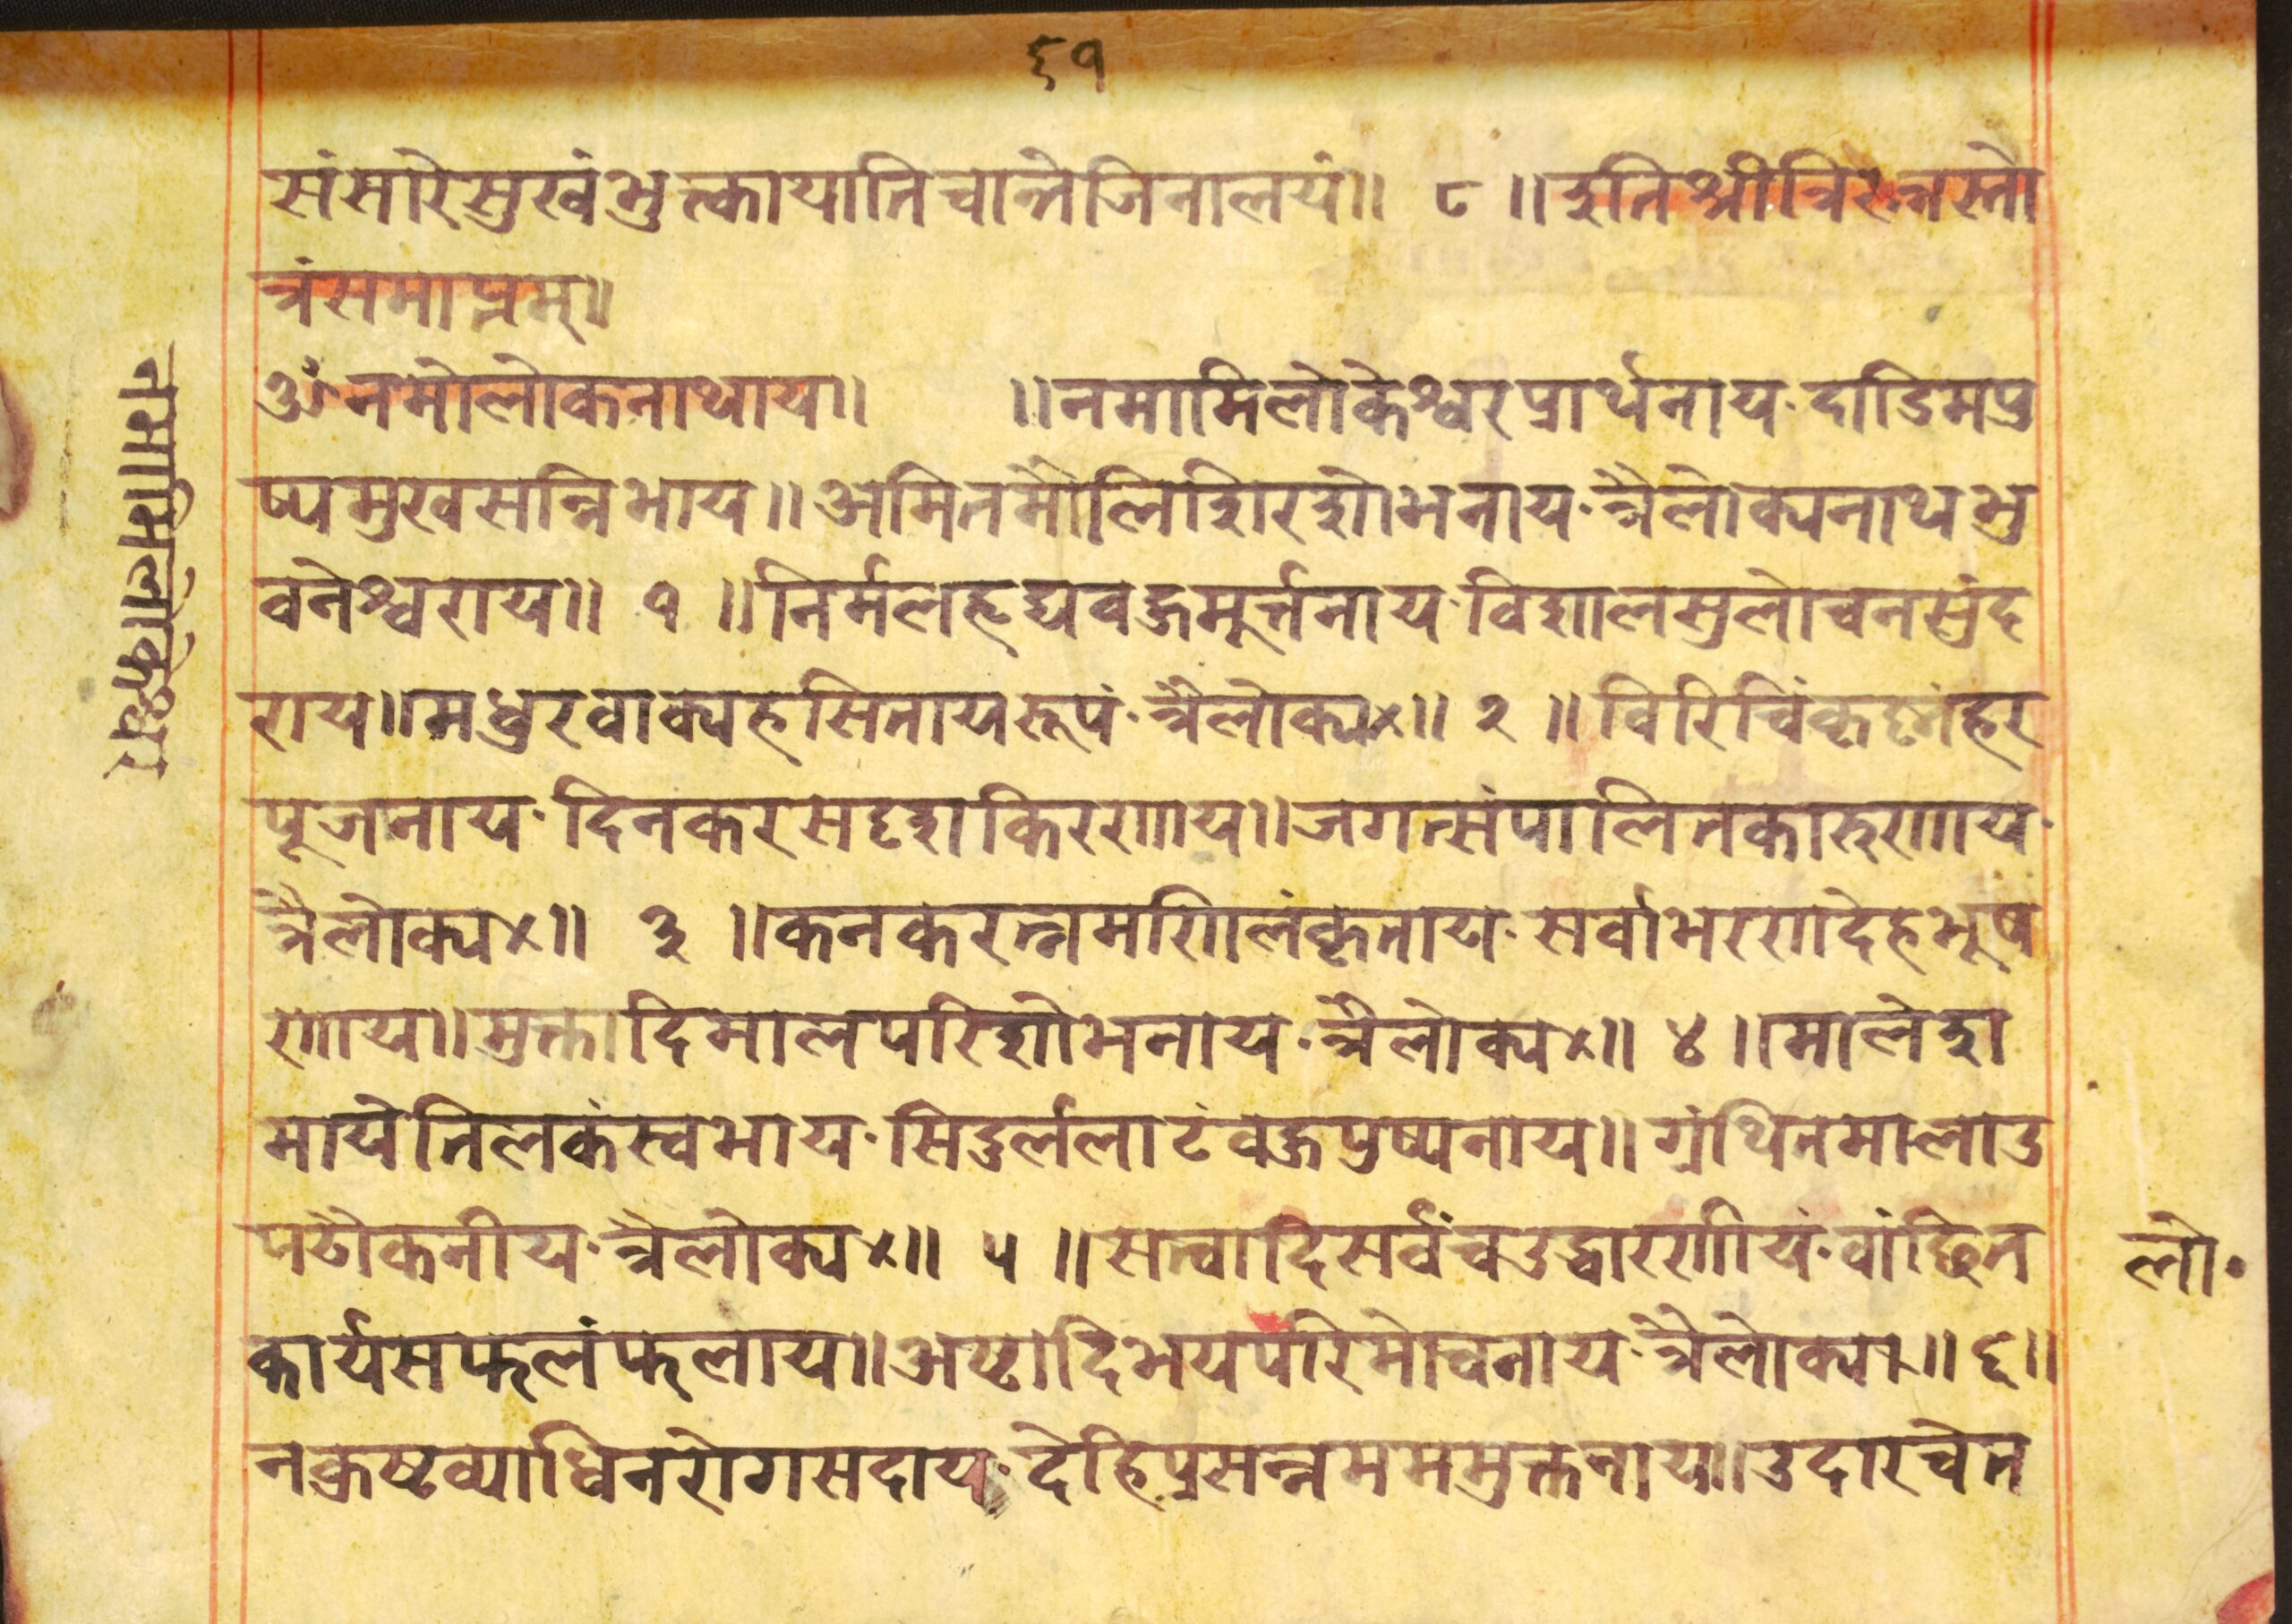 ६१
संसारेसुखंभुत्कायातिचान्तेजिनालयं॥ ८ ॥इतिश्रीत्रिरत्नस्तो
त्रंसमाप्तम्॥
ॐनमोलोकनाथाय॥ ॥नमामिलोकेश्वरप्रार्थनाय·दाडिमपु
ष्पमुखसन्निभाय॥अमितमौलिशिरशोभनाय·त्रैलोक्यनाथभु
वनेश्वराय॥ १ ॥निर्मलहृद्यवज्रमूर्त्तनाय·विशालसुलोचनसुंद
राय॥मधुरवाक्यहसितायरूपं·त्रैलोक्य४॥ २ ॥विरिचिंकृष्नंहर
पूजनाय·दिनकरसदृशकिरणाय॥जगत्संपालितकारुणाय·
त्रैलोक्य४॥ ३ ॥कनकरत्नमणिलंकृताय·सर्वाभरणदेहभूष
णाय॥मुक्तादिमालपरिशोभनाय·त्रैलोक्य४॥ ४ ॥मालेशा
मायेतिलकंस्वभाय·सिदुर्ललाटंवज्रपुष्पनाय॥ग्रंथितमालाउ
पढौकनीय·त्रैलोक्य४॥ ५ ॥सत्वादिसर्वंचउद्धारणीयं·वांछित
कार्यसफलंफलाय॥अष्टादिभयपरिमोचनाय·त्रैलोक्य४॥६॥
नकष्टव्याधिनरोगसदाय·देहिप्रसन्नमममुक्तनाय॥उदारचेत
नमामिलोकेश्वर
लो॰